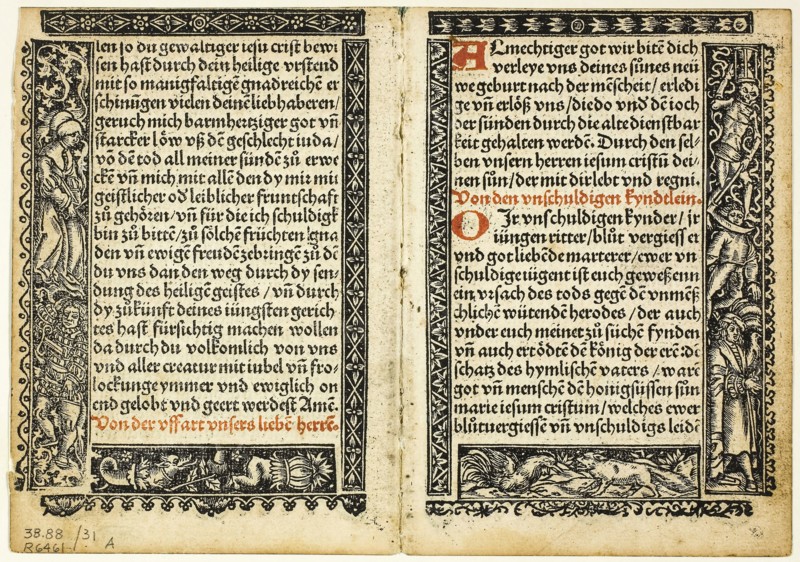 len so du gewaltiger iesu crist bewi
sen hast durch dein heilige vrstend
mit so manigfaltigē gnadreichē er
schinūgen vielen deinē liebhaberen/
geruch mich barmhertziger got vñ
starcker löw vß dē geschlecht iuda/
vō dē tod all meiner sündē zů erwe
ckē vñ mich mit allē den dy mir mit
geistlicher oď leiblicher fruntschaft
zů gehören/ vñ für die ich schuldigk
bin zů bittē/ zů sölchē früchten/ gna
den vñ ewigē freudē zebringē zů dē
du vns dan den weg durch dy sen-
dung des heiligē geistes/ vñ durch
dy zůkünft deines iüngsten gerich
tes hast fürsichtig machen wollen
da durch du volkomlich von vns
vnd aller creatur mit iubel vñ fro-
lockunge ymmer vnd ewiglich on
end gelobt vnd geert werdest Amē.
Von der vffart vnsers liebē herrē.
ALmechtiger got wir bitē dich
verleye vns deines sůnes neü
we geburt nach der mēscheit/ erledi
ge vñ erlöß vns/ die do vnď dē ioch
der sünden durch die alte dienstbar
keit gehalten werdē. Durch den sel-
ben vnsern herren iesum cristū dei-
nen sůn/ der mit dir lebt vnd regni.
Von den vnschuldigen kyndtlein.
O Ir vnschuldigen kynder/ ir
iüngen ritter/ blůt vergiess er
vnd got liebēde marterer/ ewer vn
schuldige iügent ist euch geweßenn
ein vrsach des tods gegē dē vnmēß
chlichē wütendē herodes/ der auch
vnder euch meinet zů süchē fynden
vñ auch ertödtē dē könig der erē: Di
schatz des hymlischē vaters/ warē
got vñ menschē dē honigsüssen sůn
marie iesum cristum/ welches ewer
blůtuergiessē vñ vnschuldigs leidē
38.88/31 A
R6461